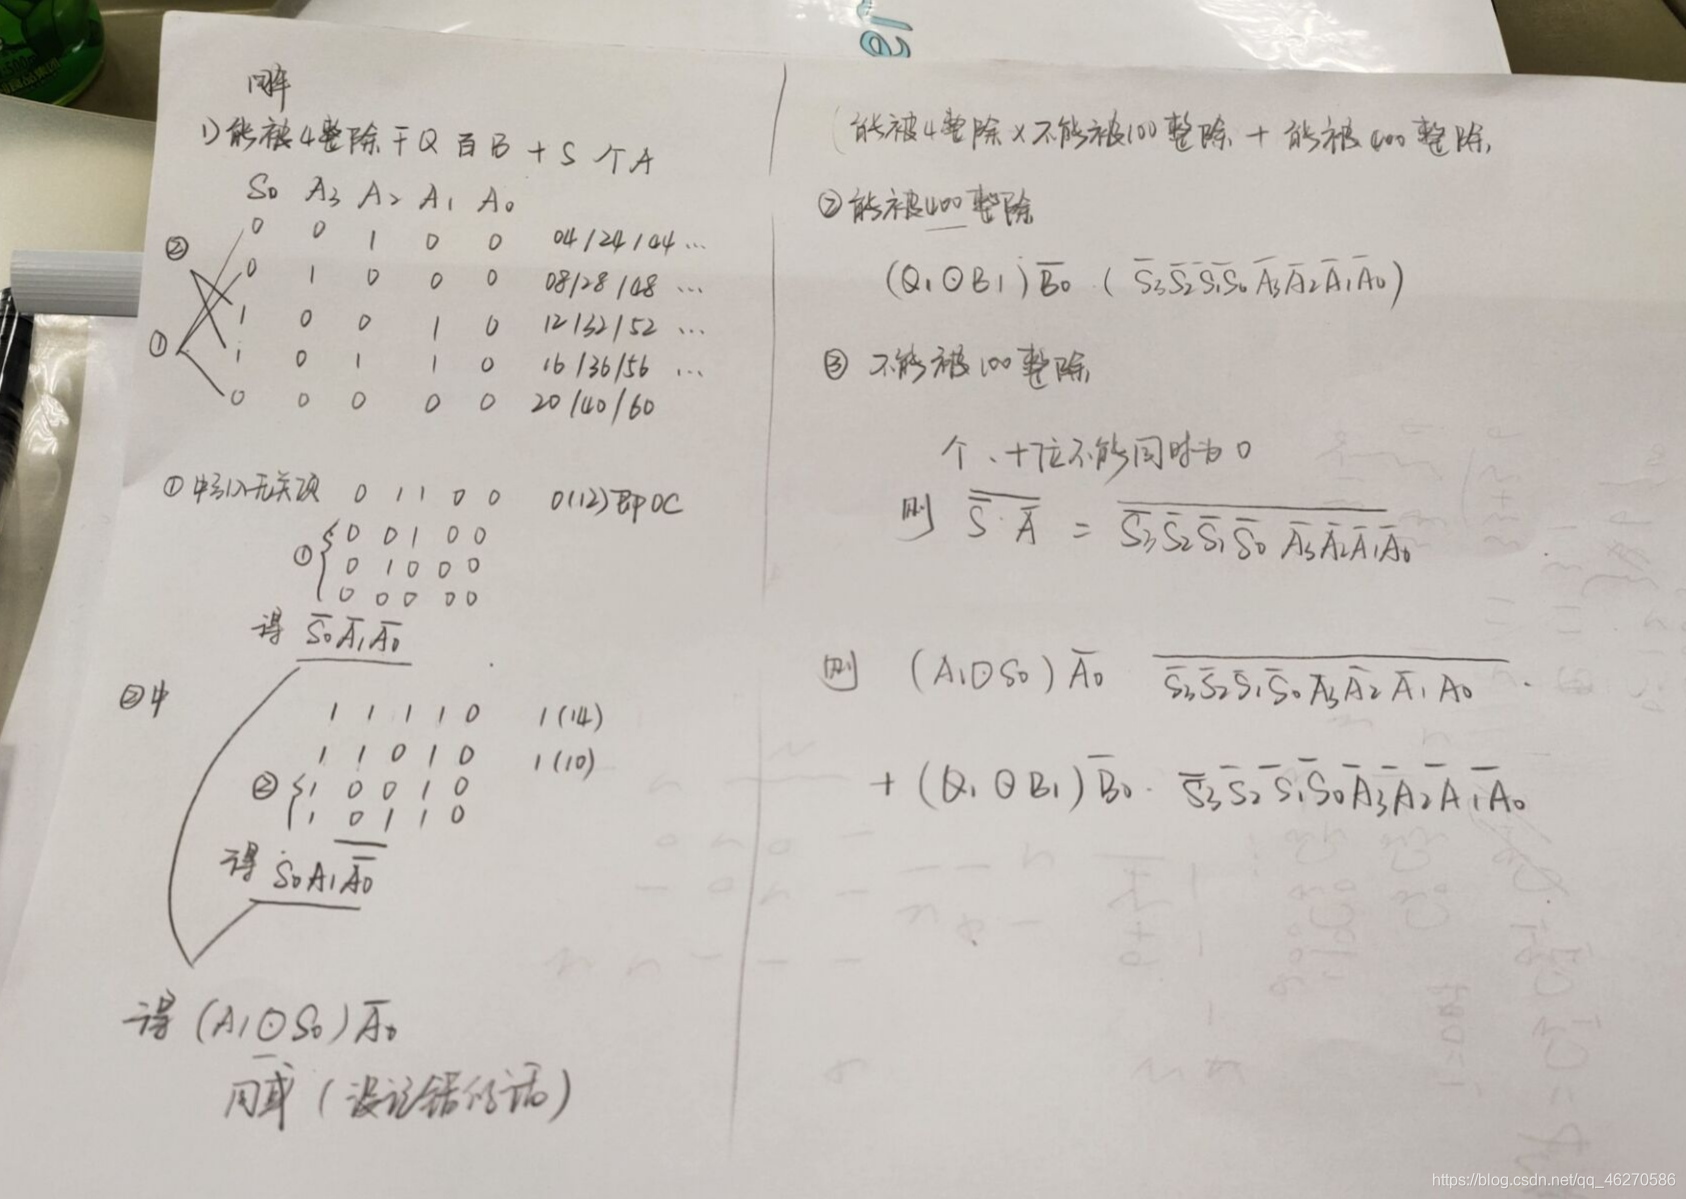 解
1)能被4整除 千Q 百B 十S 个A
S₀ A₃ A₂ A₁ A₀
0 0 1 0 0 04/24/44 ...
②
0 1 0 0 0 08/28/48 ...
1 0 0 1 0 12/32/52 ...
①
1 0 1 1 0 16/36/56 ...
0 0 0 0 0 20/40/60
①中引入无关项 0 1 1 0 0 0(12)即0C
① { 0 0 1 0 0
0 1 0 0 0
0 0 0 0 0
得 S̅₀A̅₁A̅₀
②中
1 1 1 1 0 1(14)
1 1 0 1 0 1(10)
② { 1 0 0 1 0
1 0 1 1 0
得 S₀A₁A̅₀
得 (A₁⊙S₀)A̅₀
同或(没记错的话)
(能被4整除×不能被100整除 + 能被400整除
②能被400整除
(Q₁⊙B₁)B̅₀·(S̅₃S̅₂S̅₁S̅₀A̅₃A̅₂A̅₁A̅₀)
③ 不能被100整除
个、十位不能同时为0
则 \overline{S̅·A̅} = \overline{S̅₃S̅₂S̅₁S̅₀A̅₃A̅₂A̅₁A̅₀}
则 (A₁⊙S₀)A̅₀ \overline{S̅₃S̅₂S̅₁S̅₀A̅₃A̅₂A̅₁A₀} ·
+ (Q₁⊙B₁)B̅₀·S̅₃S̅₂S̅₁S̅₀A̅₃A̅₂A̅₁A̅₀
https://blog.csdn.net/qq_46270586